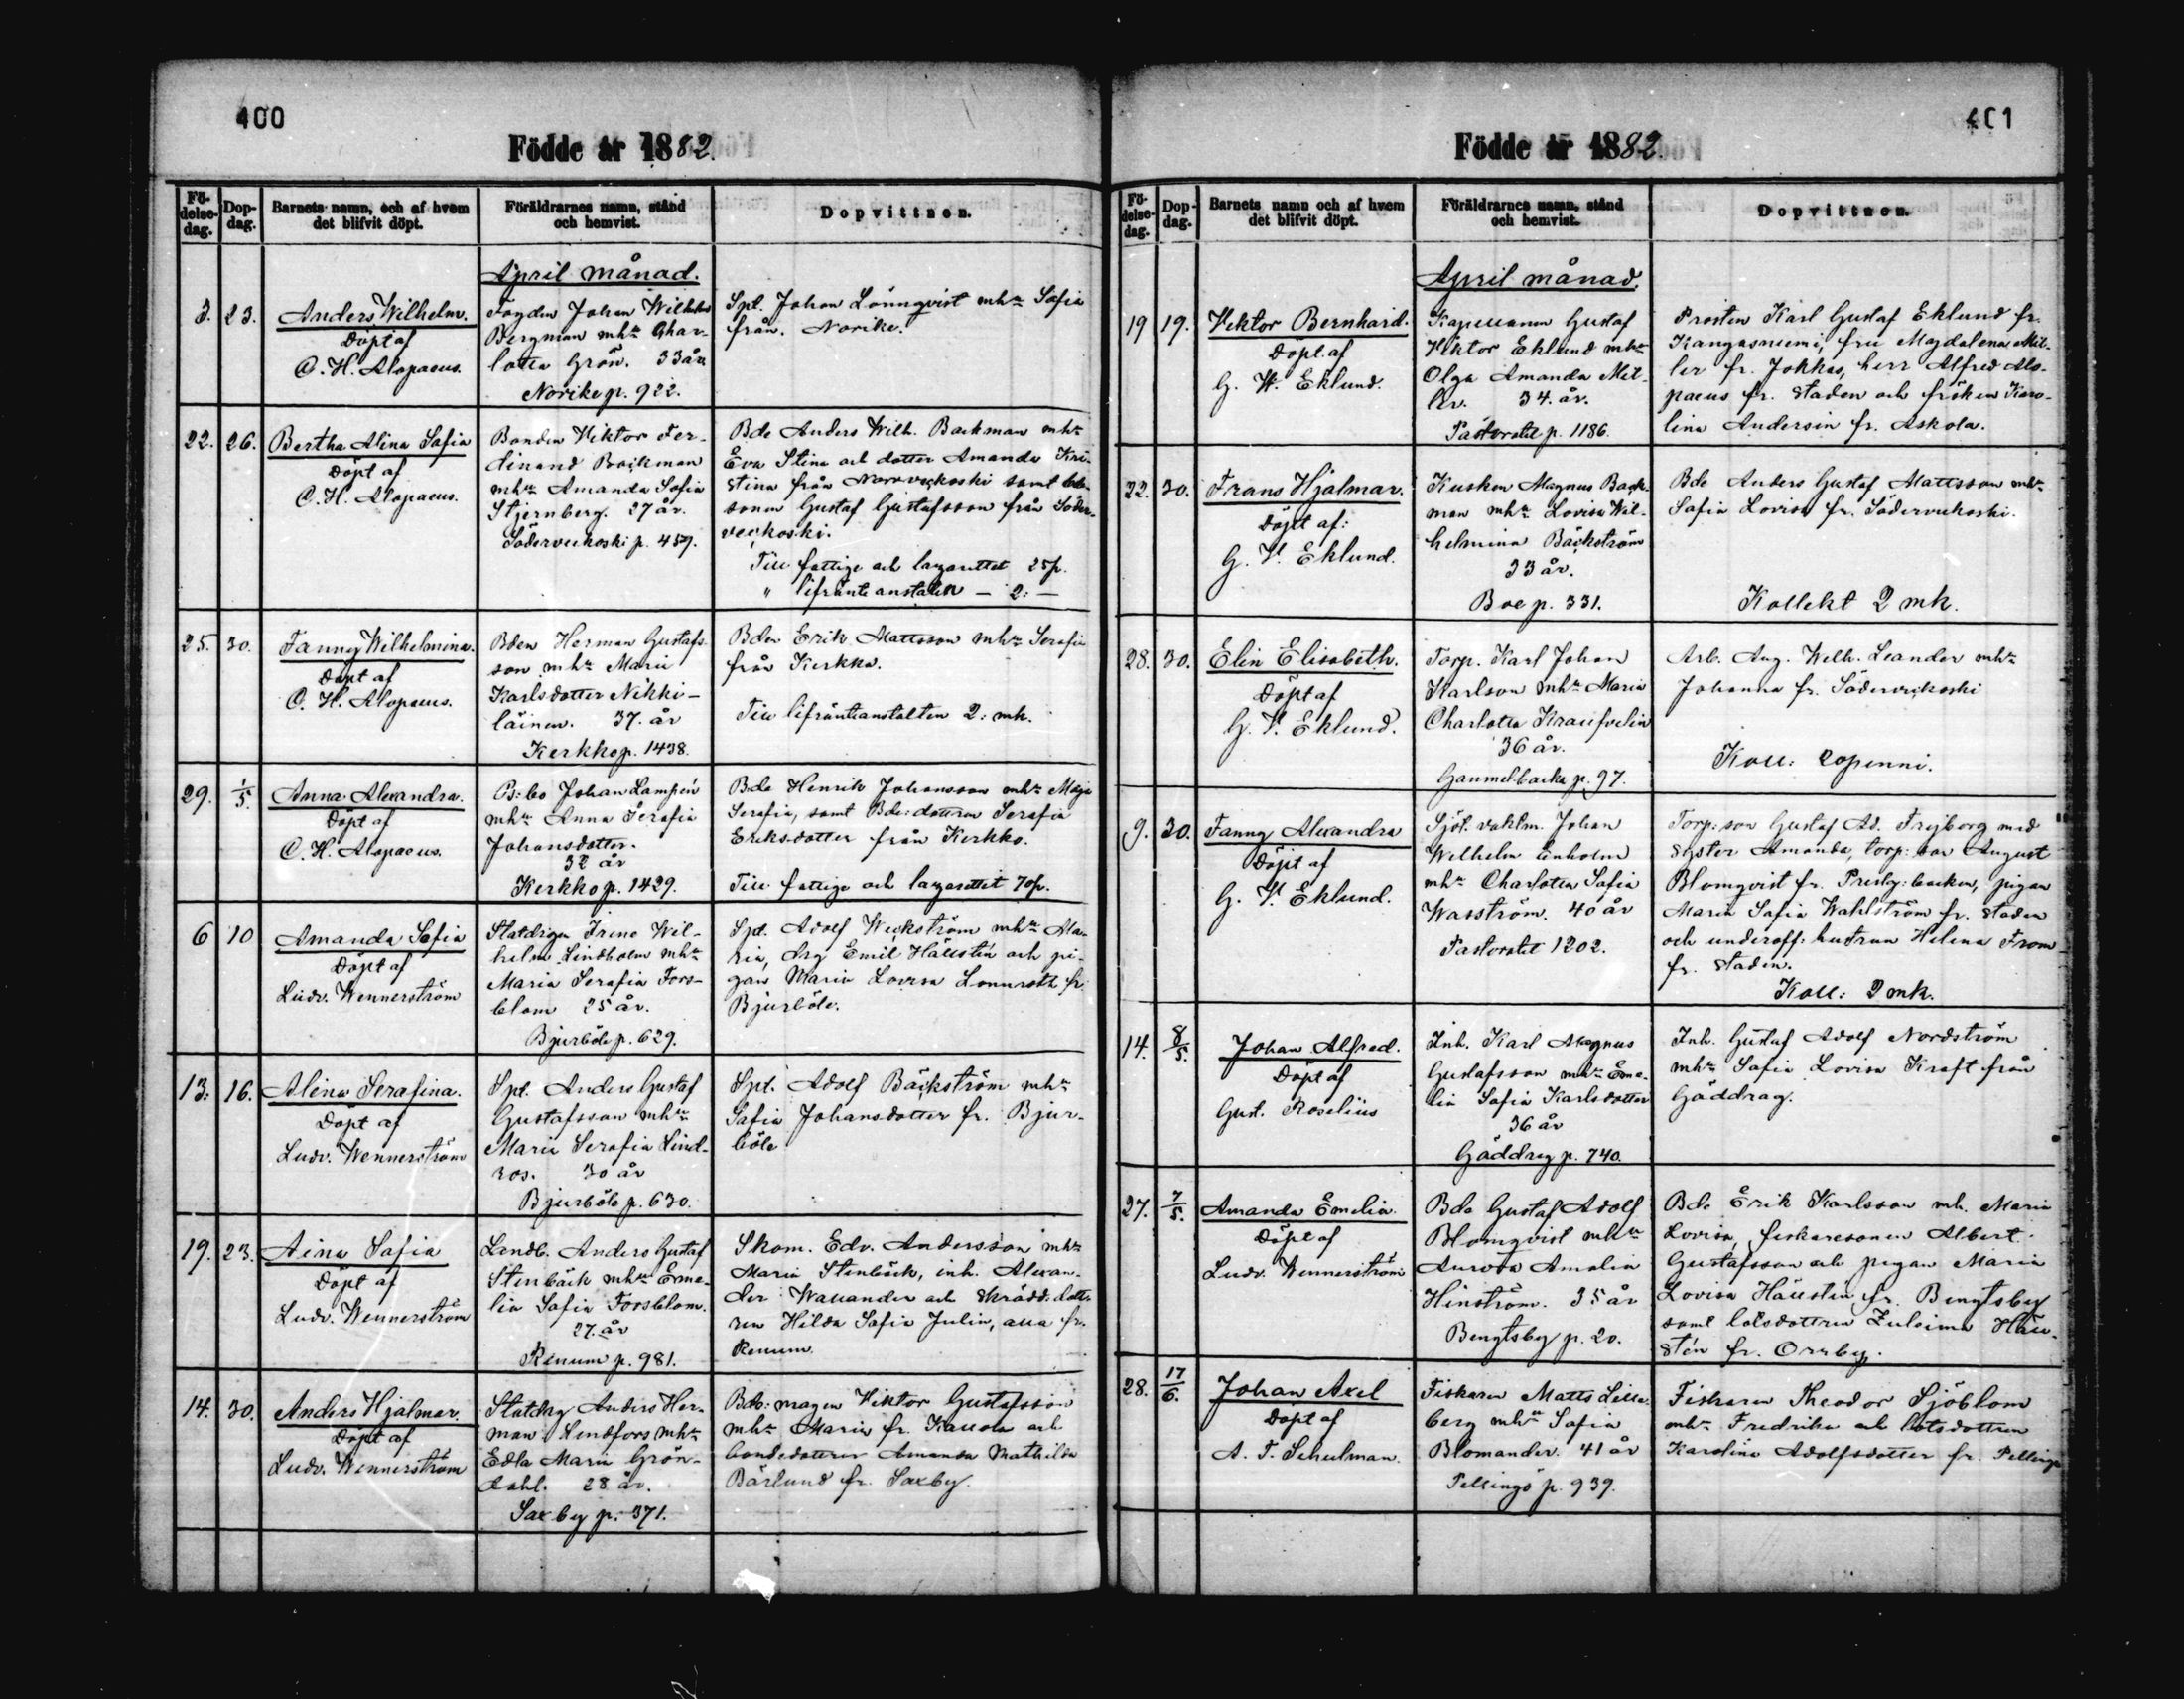 400
Födde år 1882.
Fö-
delse-
dag.
Dop-
dag.
Barnets namn, och af hvem
det blifvit döpt.
Föräldrarnes namn, stånd
och hemvist.
Dopvittnen.
April månad.
3. 23.
Anders Wilhelm.
Döpt af
C. H. Alopaeus.
Fogden Johan Wilhelm
Bergman mhu Char-
lotta Grön. 33 år
Norike p. 922.
Spl. Johan Lönnqvist mhu Sofia
från Norike.
22. 26.
Bertha Alina Sofia
Döpt af
C. H. Alopaeus.
Bonden Viktor Fer-
dinand Backman
mhu Amanda Sofia
Stjernberg. 27 år.
Söderveckoski p. 457.
Bde Anders Wilh. Backman mhu
Eva Stina och dotter Amanda Kri-
stina från Norrveckoski samt
sonen Gustaf Gustafsson från Söder-
veckoski.
Till fattige och lazarettet 25 p.
" lifränteanstalten — 2: —
25. 30.
Fanny Wilhelmina.
Döpt af
C. H. Alopaeus.
Bden Herman Gustafs-
son mhu Maria
Karlsdotter Nikki-
läinen. 37. år
Kerkko p. 1438.
Bden Erik Mattsson mhu Serafia
från Kerkko.
Till lifränteanstalten 2: mk.
29. 1/5
Anna Alexandra.
Döpt af
C. H. Alopaeus.
Bs: bo Johan Lampén
mhu Anna Serafia
Johansdotter.
32 år
Kerkko p. 1429.
Bde Henrik Johansson mhu Maja
Serafia, samt Bde: dottren Serafia
Eriksdotter från Kerkko.
Till fattige och lazarettet 70 p.
6 10
Amanda Sofia
Döpt af
Ludv. Wennerström
Statdrgn Irene Wil-
helm Lindholm mhu
Maria Serafia Fors-
blom 25 år.
Bjurböle p. 629.
Spl. Adolf Weckström mhu Ma-
ria, drg Emil Hällstén och pi-
gan Maria Lovisa Lönnroth fr.
Bjurböle.
13: 16.
Alina Serafina.
Döpt af
Ludv. Wennerström
Spl. Anders Gustaf
Gustafsson mhu
Maria Serafia Lind-
ros. 30 år
Bjurböle p. 630.
Spl. Adolf Bäckström mhu
Sofia Johansdotter fr. Bjur-
böle
19. 23.
Aina Sofia
Döpt af
Ludv. Wennerström
Landb. Anders Gustaf
Stenbäck mhu Eme-
lia Sofia Forsblom.
27. år
Renum p. 981.
Skom. Edv. Andersson mhu
Maria Stenbäck, inh. Alexan-
der Wallander och skrädd: dott-
ren Hilda Sofia Julin, alla fr.
Renum.
14. 30.
Anders Hjalmar.
Döpt af
Ludv. Wennerström
Statdrg Anders Her-
man Lindfors mhu
Edla Maria Grön-
dahl. 28 år.
Saxby p. 371.
Bde: magen Viktor Gustafsson
mhu Maria fr. Kallola och
bondedottren Amanda Mathilda
Bärlund fr. Saxby.
401
Födde år 1882.
Fö-
delse-
dag.
Dop-
dag.
Barnets namn och af hvem
det blifvit döpt.
Föräldrarnes namn, stånd
och hemvist.
Dopvittnen.
April månad.
19 19.
Viktor Bernhard.
Döpt af
G. V. Eklund.
Kapellanen Gustaf
Viktor Eklund mhu
Olga Amanda Mel-
ler. 34. år.
Pastoratet p. 1186.
Prosten Karl Gustaf Eklund fr.
Kangasniemi, fru Magdalena Mel-
ler fr. Jokkas, herr Alfred Alo-
paeus fr. staden och fröken Karo-
lina Andersin fr. Askola.
22. 30.
Frans Hjalmar.
Döpt af:
G. V. Eklund.
Kusken Magnus Back-
man mhu Lovisa Wil-
helmina Bäckström
33 år.
Boe p. 331.
Bde Anders Gustaf Mattsson mhu
Sofia Lovisa fr. Söderveckoski.
Kollekt 2 mk.
28. 30.
Elin Elisabeth.
Döpt af
G. V. Eklund.
Torp. Karl Johan
Karlson mhu Maria
Charlotta Kraufvelin
36 år.
Gammelbacka p. 97.
Arb. Aug. Wilh. Leander mhu
Johanna fr. Söderveckoski
Koll: 20 penni.
9. 30.
Fanny Alexandra
Döpt af
G. V. Eklund.
Sjöt. vaktm. Johan
Wilhelm Enholm
mhu Charlotta Sofia
Wasström. 40 år
Pastoratet 1202.
Torp: son Gustaf Ad. Frejborg med
syster Amanda, torp: son August
Blomqvist fr. Prestg: backen, pigan
Maria Sofia Wahlström fr. staden
och underoff: hustrun Helena From
fr. staden.
Koll: 2 mk.
14. 8/5.
Johan Alfred.
Döpt af
Gust. Roselius
Inh. Karl Magnus
Gustafsson mhu Eme-
lia Sofia Karlsdotter
36 år
Gäddrag p. 740.
Inh. Gustaf Adolf Nordström
mhu Sofia Lovisa Kraft från
Gäddrag.
27. 7/5.
Amanda Emelia.
Döpt af
Ludv. Wennerström
Bde Gustaf Adolf
Blomqvist mhu
Aurora Amalia
Hinström. 35 år
Bengtsby p. 20.
Bde Erik Karlsson mh. Maria
Lovisa, fiskaresonen Albert
Gustafsson och pigan Maria
Lovisa Hällstén fr. Bengtsby
samt lotsdottren Zuleima Häll-
stén fr. Orrby.
28. 17/6.
Johan Axel
Döpt af
A. F. Schulman.
Fiskaren Matts Lille-
berg mhu Sofia
Blomander. 41 år
Pellinge p. 939.
Fiskaren Theodor Sjöblom
mhu Fredrika och lotsdottren
Karolina Adolfsdotter fr. Pellinge